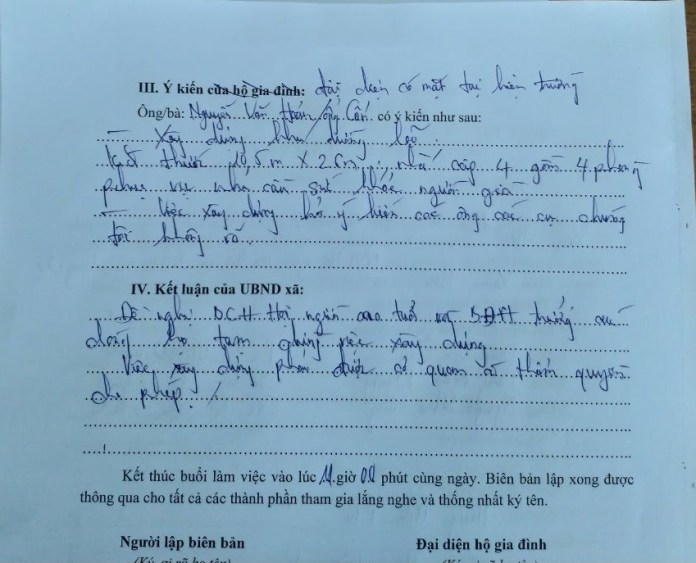 III. Ý kiến của hộ gia đình: đại diện có mặt tại hiện trường
Ông/bà: Nguyễn Văn có ý kiến như sau:
- Xây dựng khu dưỡng lão
Kích thước 10,5m X 2.6m nhà cấp 4 gồm 4 phòng
phục vụ nhu cầu sức khỏe người già
- Việc xây dựng ý kiến các ông các cụ chúng
tôi không rõ.
IV. Kết luận của UBND xã:
Đề nghị BCH Hội người cao tuổi
dừng tạm việc xây dựng
Việc xây dựng phải được cơ quan có thẩm quyền
cho phép./
Kết thúc buổi làm việc vào lúc 11 giờ 00 phút cùng ngày. Biên bản lập xong được
thông qua cho tất cả các thành phần tham gia lắng nghe và thống nhất ký tên.
Người lập biên bản Đại diện hộ gia đình